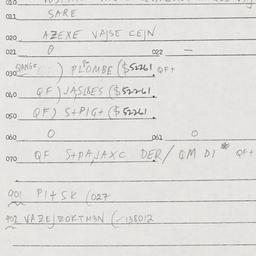 011 SARE
020 AZEXE VAJSE CEJN
021 0 022 —
RANGE
030 ) PLOMBE ($52261. QF+
040 QF) JASLBES ($52261.
050 QF) S+PIG+ ($52261.
060 0 061 0
070 QF S+PAJAXC DER/ QM DI* QF+
001 PI+SK (027
902 VAZEJZOKTH3N (-138012